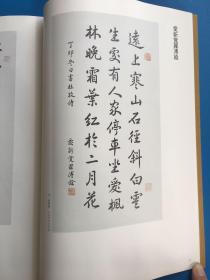 愛新覺羅溥
遠上寒山石徑斜白雲
生處有人家停車坐愛楓
林晚霜葉紅於二月花
丁卯冬日書杜牧詩
愛新覺羅溥